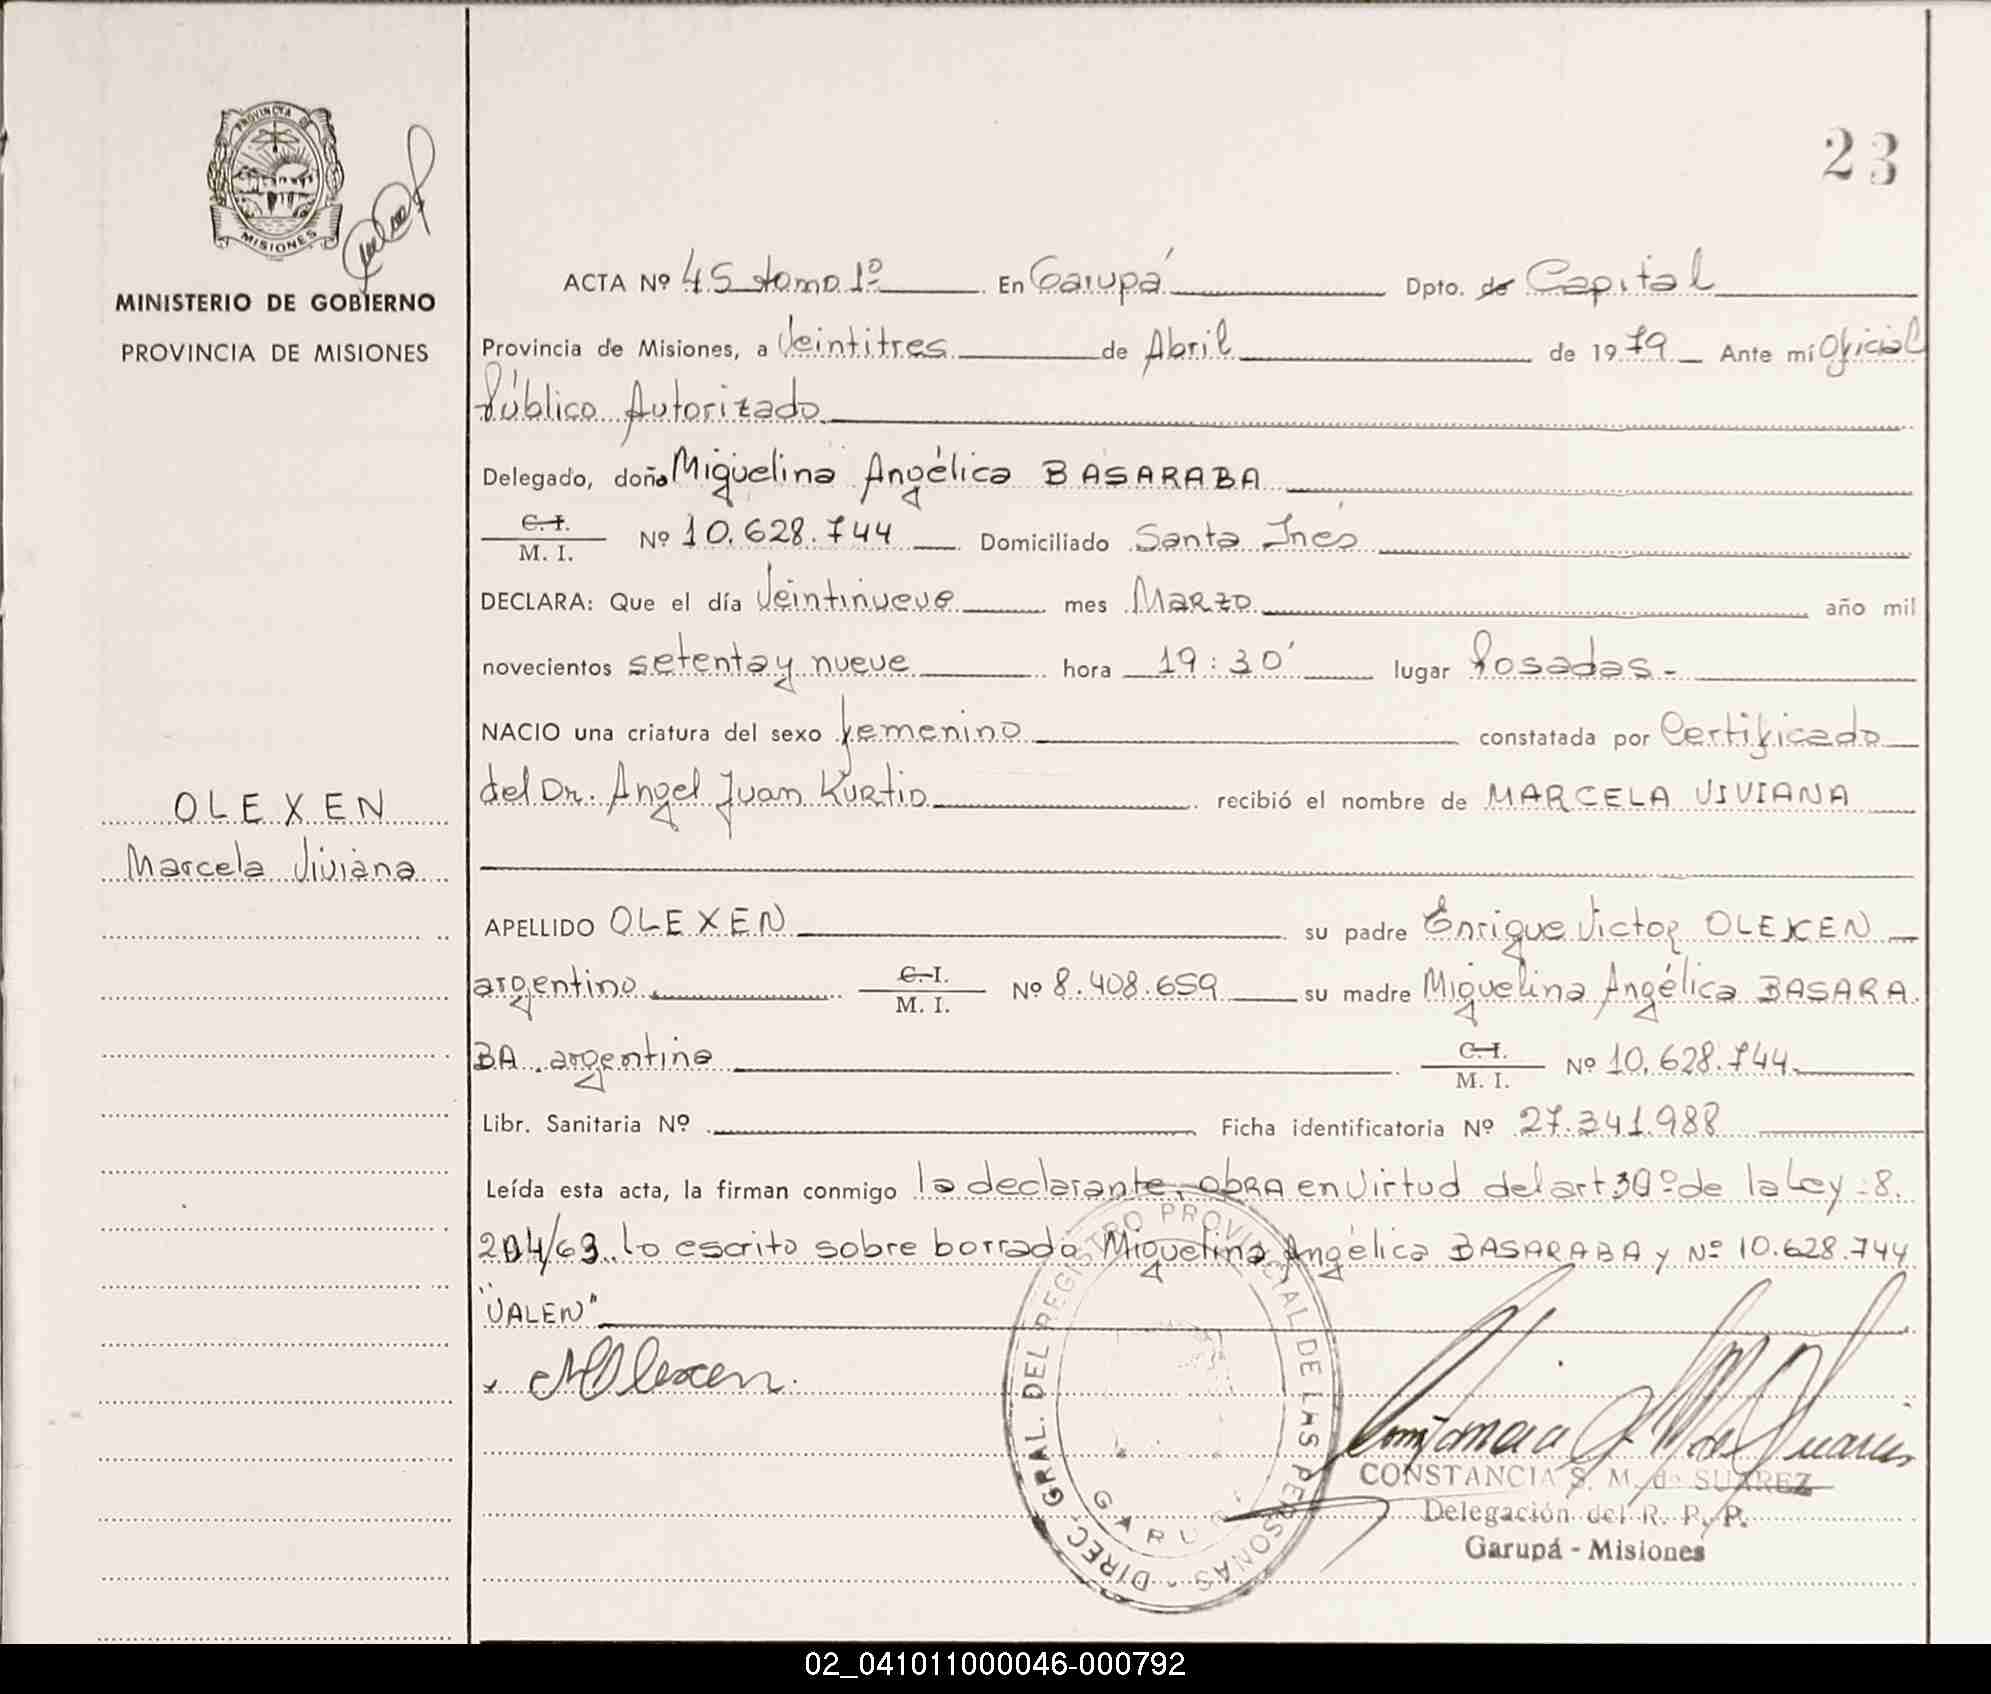 23
PROVINCIA DE
MISIONES
MINISTERIO DE GOBIERNO
PROVINCIA DE MISIONES
OLEXEN
Marcela Viviana
ACTA Nº 45 tomo 1º En Garupá Dpto. de Capital
Provincia de Misiones, a Veintitres de Abril de 1979 Ante mí Oficial
Público Autorizado
Delegado, doña Miguelina Angélica BASARABA
C. I.
M. I. Nº 10.628.744 Domiciliado Santa Inés
DECLARA: Que el día Veintinueve mes Marzo año mil
novecientos setenta y nueve hora 19:30' lugar Posadas.-
NACIO una criatura del sexo femenino constatada por Certificado
del Dr. Angel Juan Kurtio recibió el nombre de MARCELA VIVIANA
APELLIDO OLEXEN su padre Enrique Victor OLEXEN
argentino C.I.
M. I. Nº 8.408.659 su madre Miguelina Angélica BASARA
BA. argentina C.I.
M. I. Nº 10.628.744.
Libr. Sanitaria Nº Ficha identificatoria Nº 27.341.988
Leída esta acta, la firman conmigo la declarante, obra en virtud del art 30º de la Ley 8.
204/63. lo escrito sobre borrado Miguelina Angélica BASARABA y Nº 10.628.744
"VALEN"
MOlexen.
DIREC. GRAL. DEL REGISTRO PROVINCIAL DE LAS PERSONAS -
GARUPA
CONSTANCIA S. M. de SUAREZ
Delegación del R. P. P.
Garupá - Misiones
02_041011000046-000792